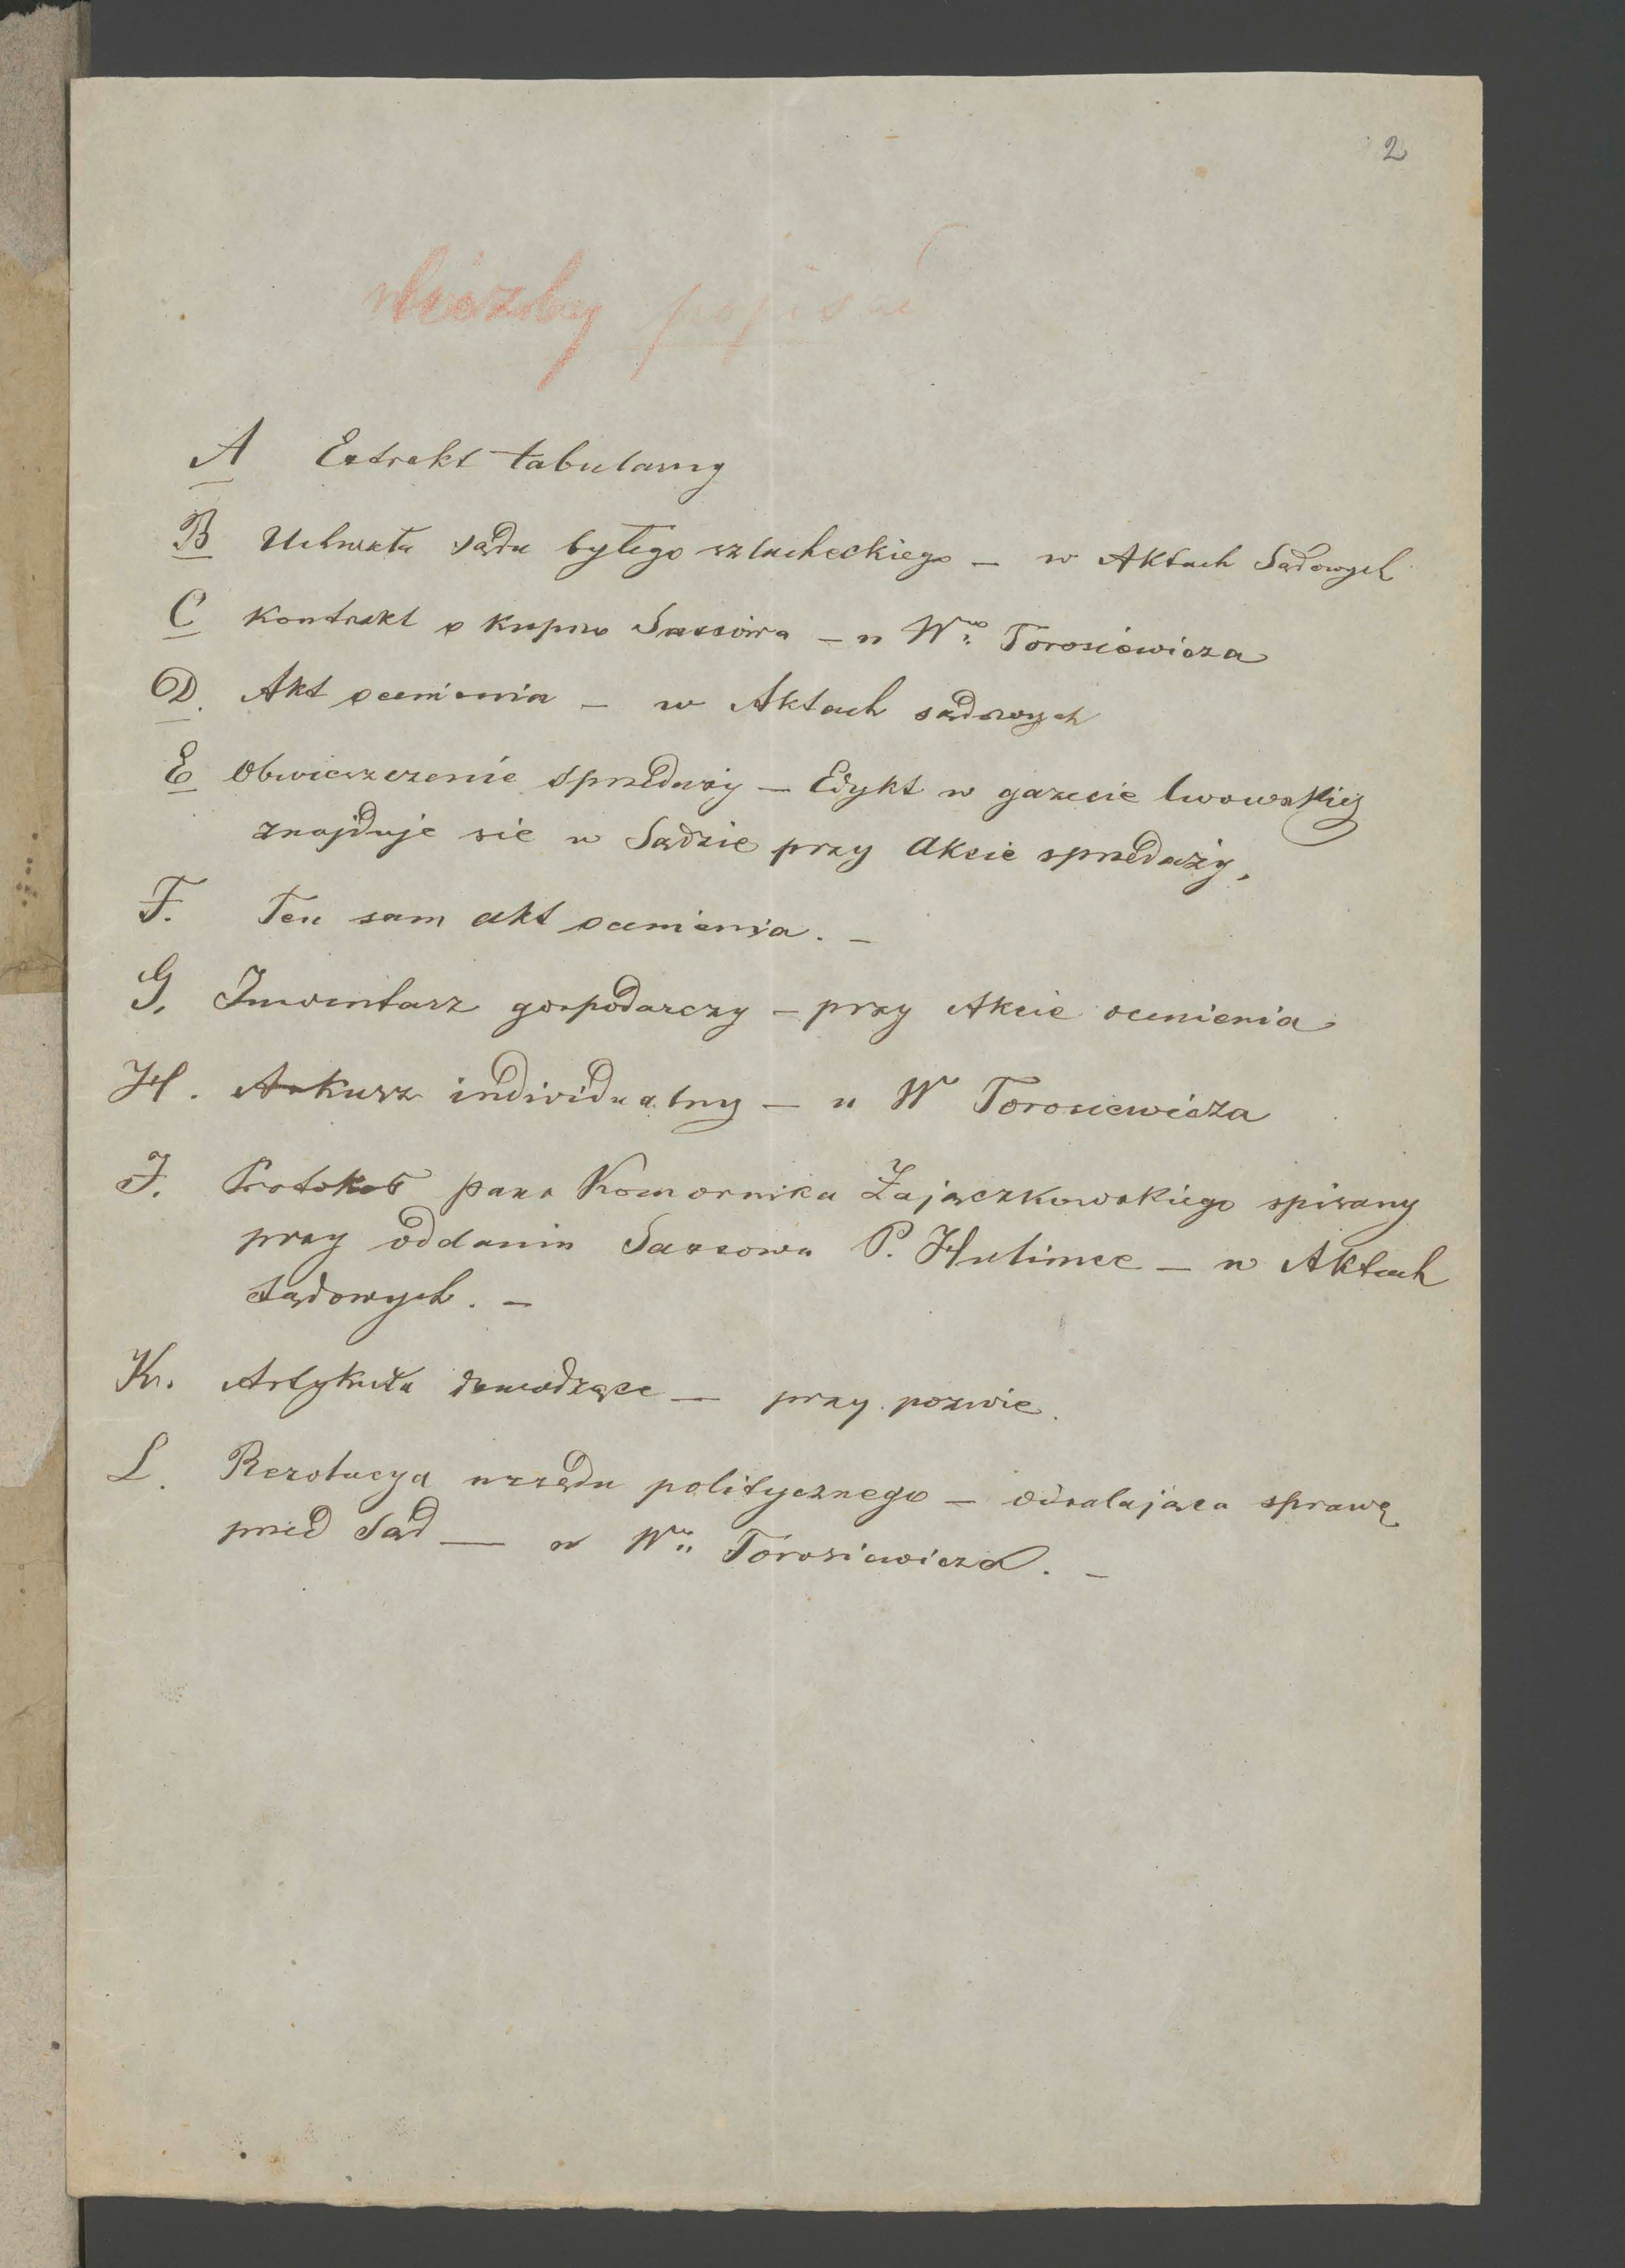 2
popisać
A Extrakt tabularny
B Uchwała sądu byłego szlacheckiego – w Aktach Sądowych
C Kontrakt o kupno Sassowa – u Wgo Torosiewicza
D. Akt ocenienia – w Aktach sądowych
E Obwieszczenie sprzedaży – Edykt w gazecie lwowskiej
znajduje sie w Sądzie przy Akcie sprzedaży.
F. Ten sam akt ocenienia. –
G. Inwentarz gospodarczy – przy Akcie ocenienia
H. Arkusz individualny – u W Torosiewicza
J. Protokół pana Komornika Zajączkowskiego spisany
przy oddaniu Sassowa P. Hulimce – w Aktach
sądowych. –
K. Artykuła dowodzące – przy pozwie.
L. Rezolucya urzędu politycznego – odsalająca sprawę
przed Sąd — u Wgo Torosiewicza. –